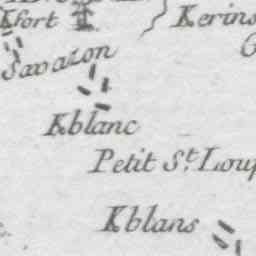 Kfort
Kerins
Savazon
Kblanc
Petit St. Loup
Kblans